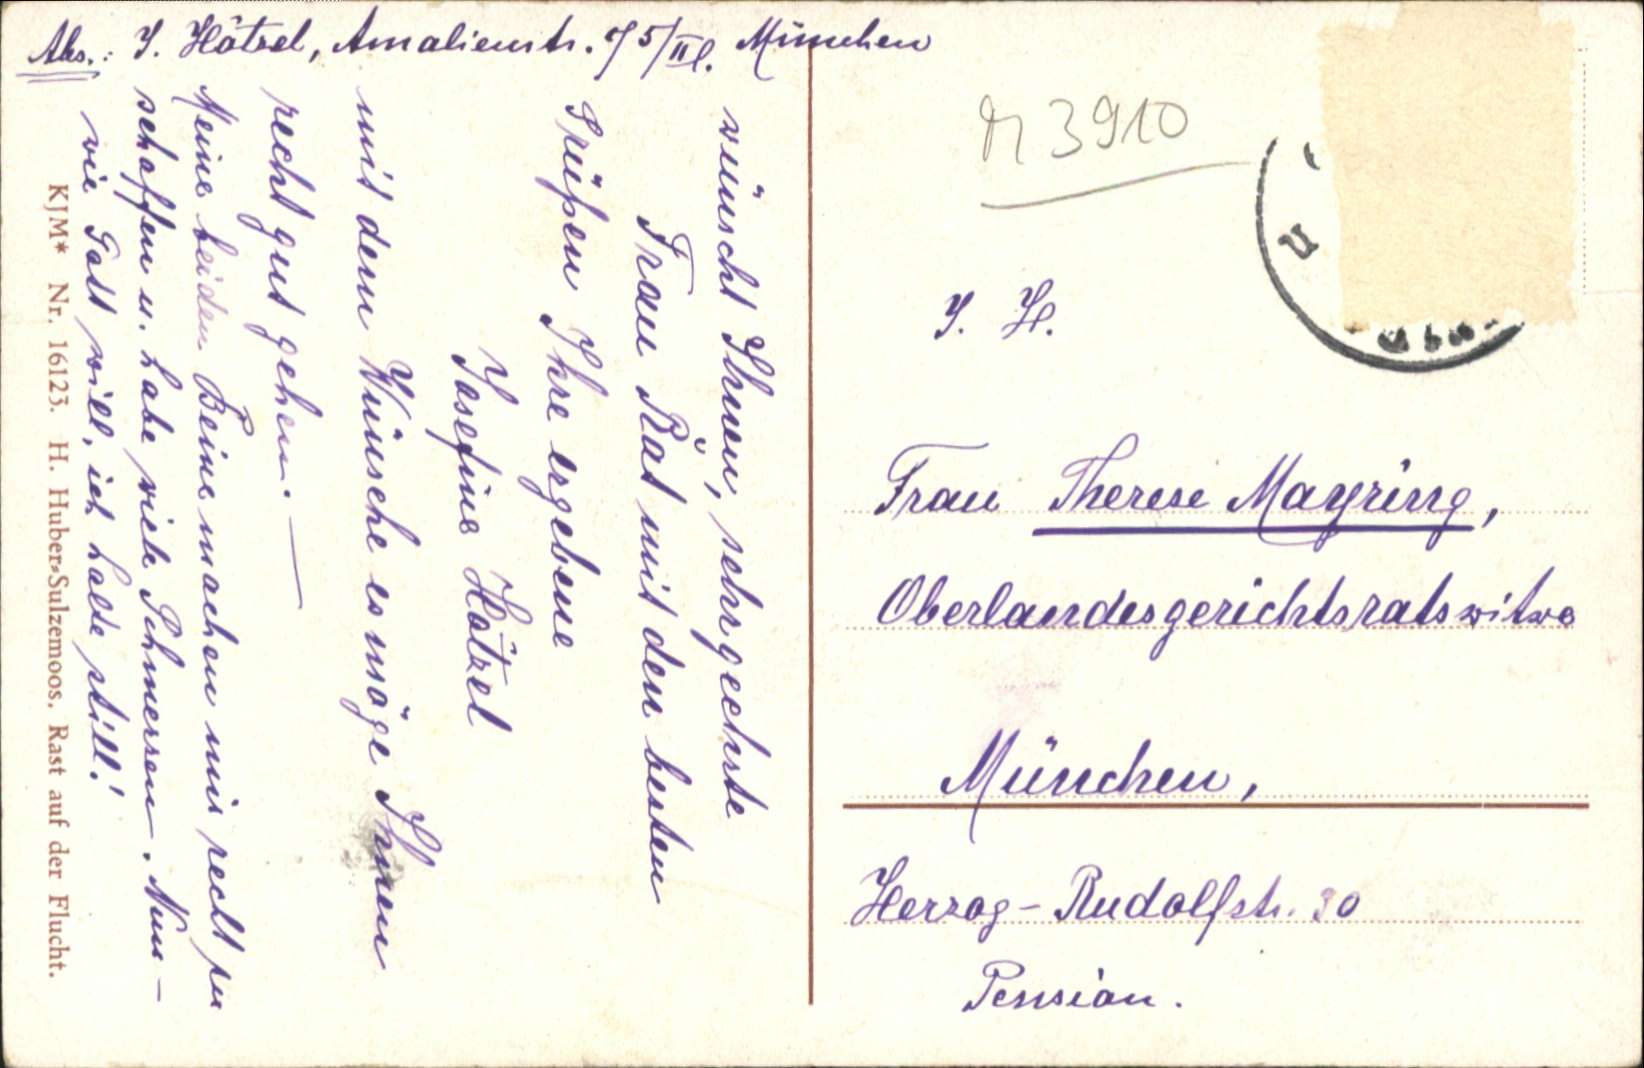 Abs.: J. Hötzel, Amalienstr. 75/II l. München
wünscht Ihnen, sehrgeehrte
Frau Rat mit den besten
Grüßen Ihre ergebene
Josefine Hötzel
mit dem Wunsche es möge Ihnen
recht gut gehen. —
Meine beiden Beine machen mir recht zu
schaffen u. habe viele Schmerzen. Nun –
wie Gott will, ich halte still!
KJM* Nr. 16123. H. Huber-Sulzemoos. Rast auf der Flucht.
3910
J. H.
Frau Therese Mayring,
Oberlandesgerichtsratswitwe
München,
Herzog-Rudolfstr. 30
Pension.